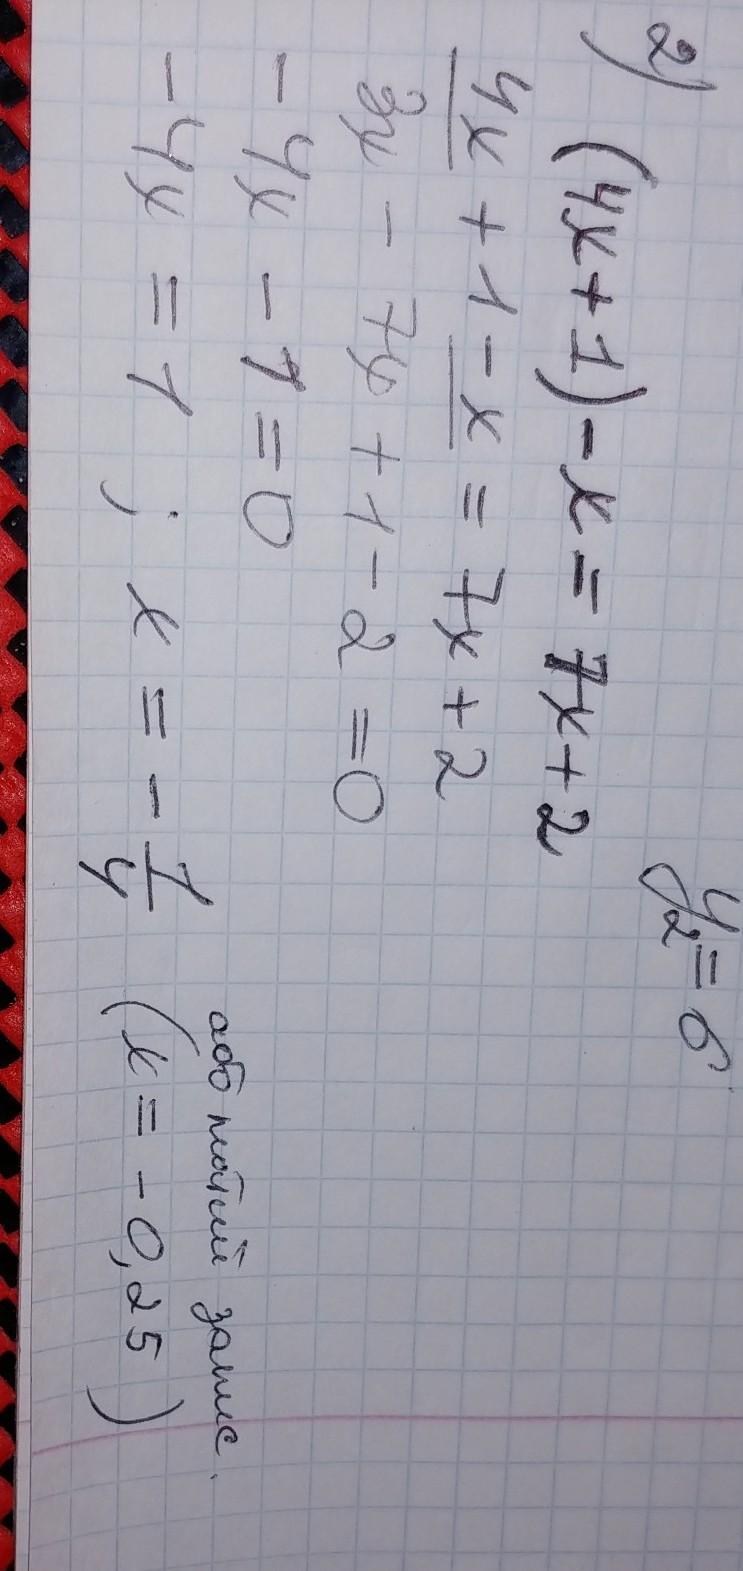 y₂ = 6
2) (4x+1) - x = 7x+2
4x + 1 - x = 7x + 2
3x - 7x + 1 - 2 = 0
- 4x - 1 = 0
або такий запис.
- 4x = 1 ; x = - 1/4 (x = -0,25)